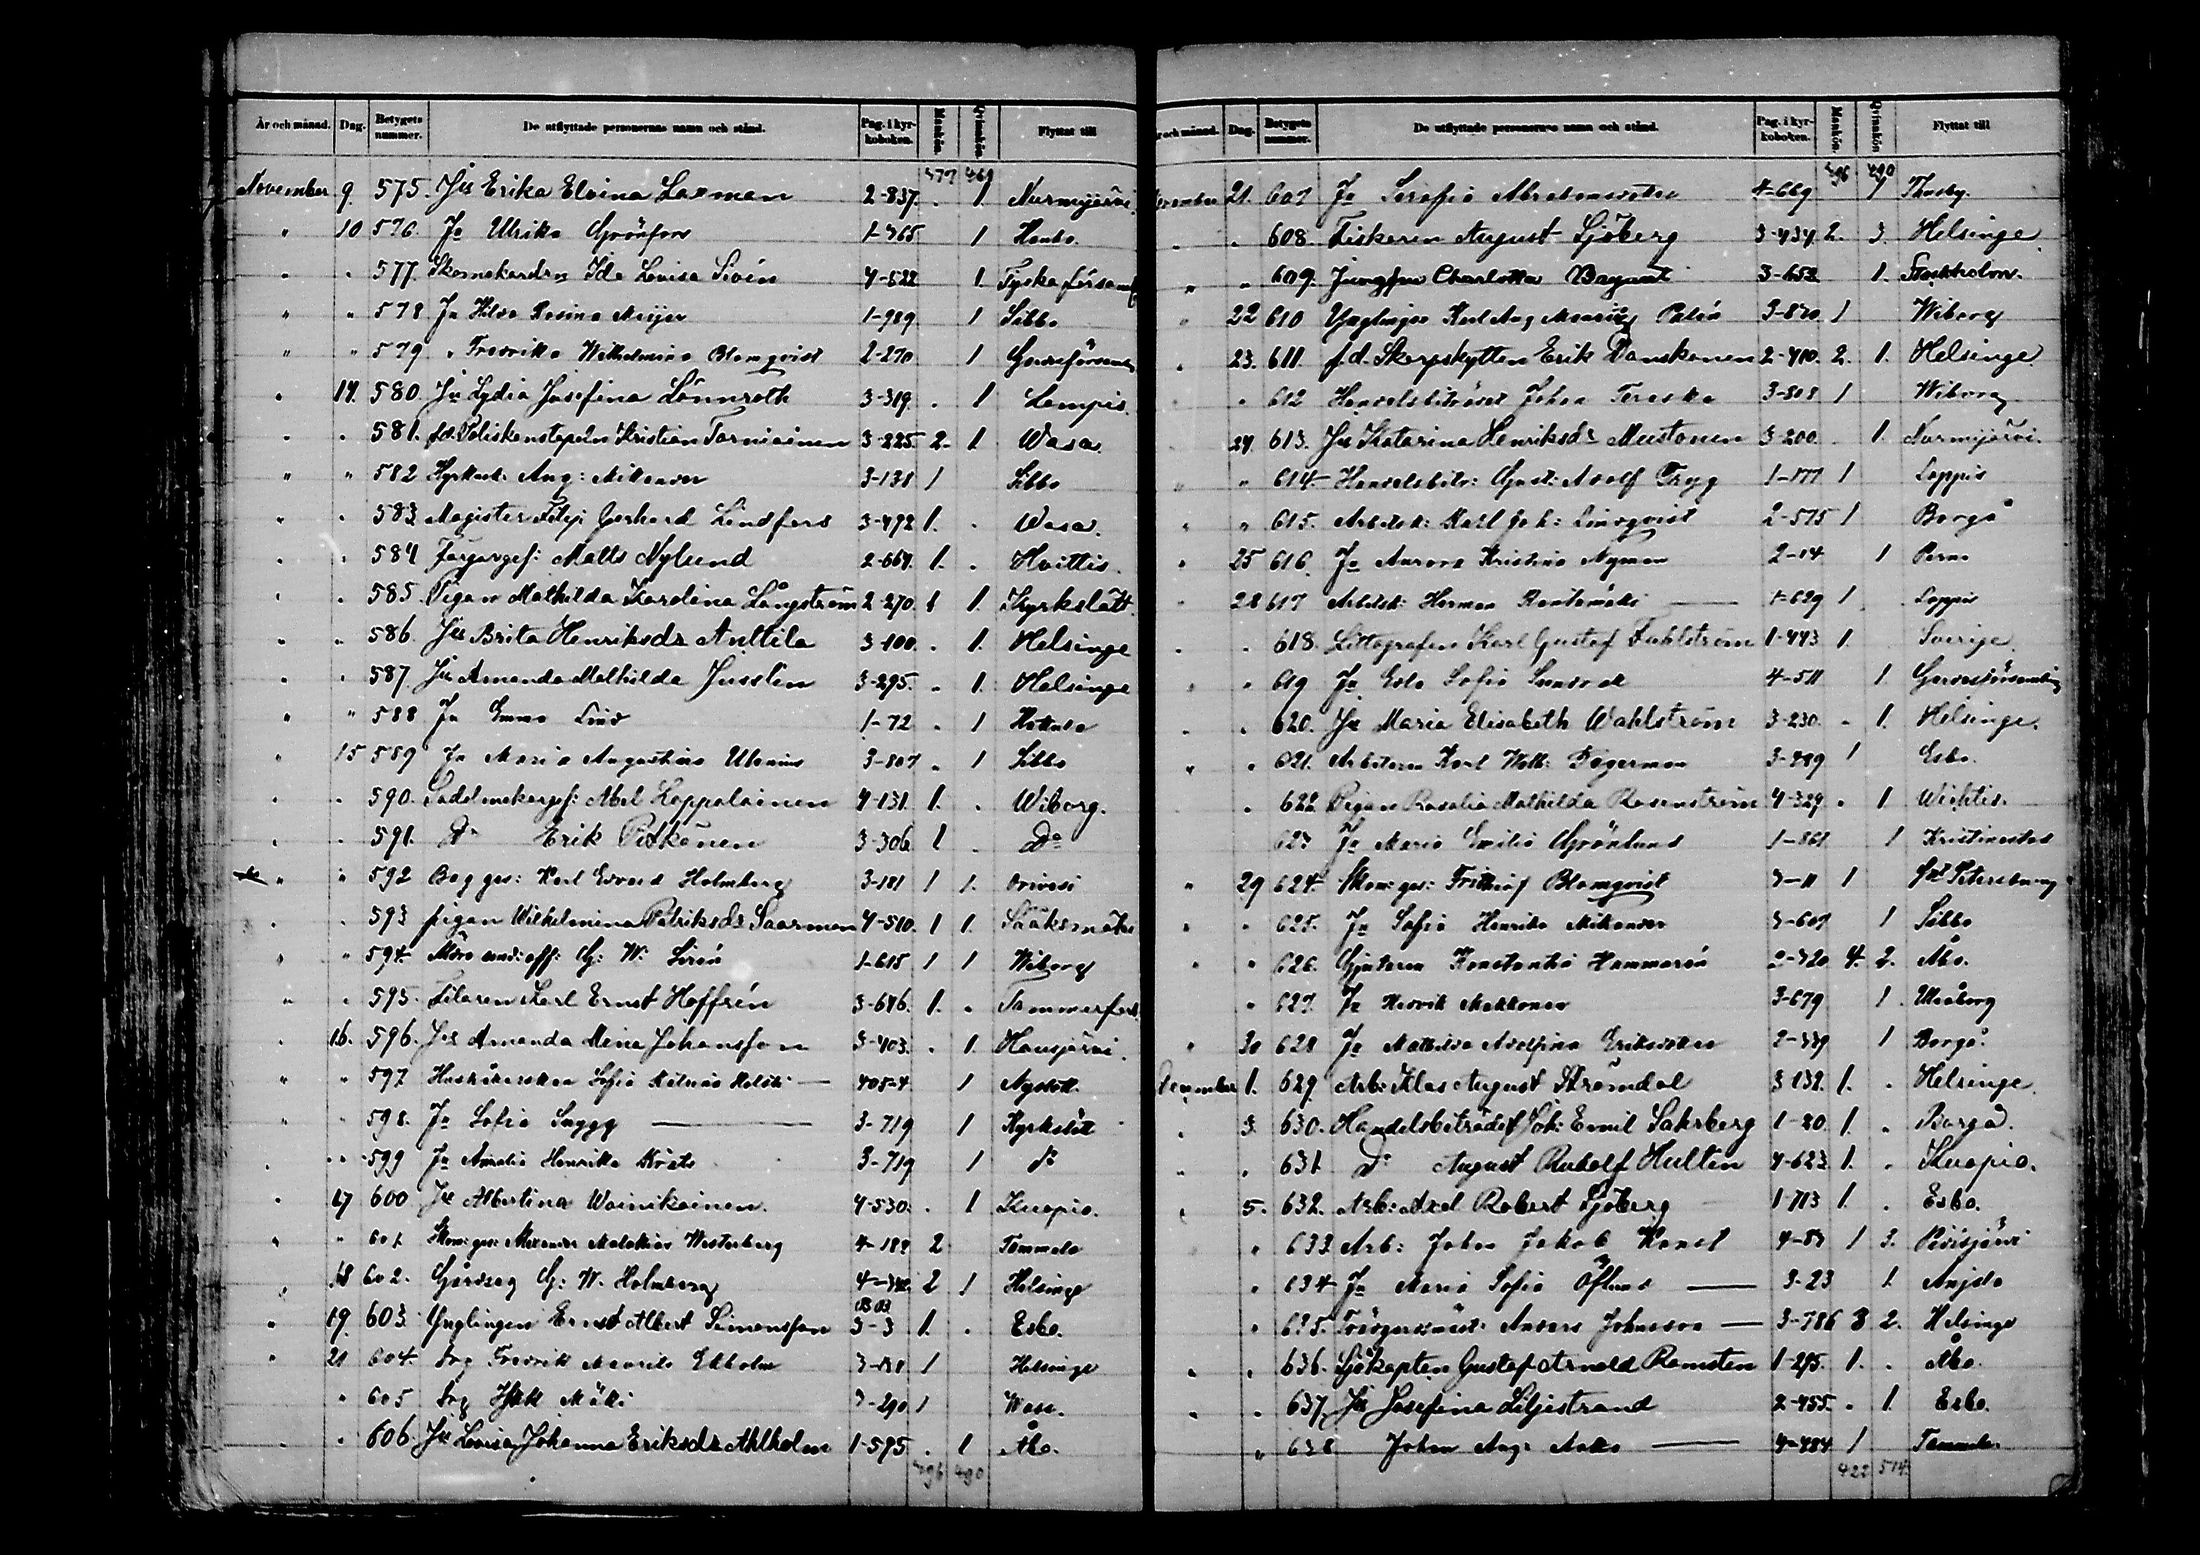 År och månad. Dag. Betygets nummer. De utflyttade personernas namn och stånd. Pag. i kyrkoboken. Mankön. Qvinnkön. Flyttat till
377 469
November 9. 575. Js Erika Elvina Laxman 2-837. . 1 Nurmijärvi.
" 10 576. Ja Ulrika Grönfors 1-365 1
" . 577. Ida Lovisa Sivén 4-522 1. Tyska församl
" " 578 Ja Hilda Rosina Meijer 1-989 1 Sibbo
" " 579 " Fredrika Wilhelmina Blomqvist 2-270 1
" 14. 580. Js Lydia Josefina Lönnroth 3-319. . 1 Lampis.
" . 581. f.d. Poliskonstapeln Kristian Torniainen 3-225 2. 1 Wasa.
" " 582 Aug: Mikander 3-138 1 Sibbo
" . 583. Magister Gerhard Lindfors 3-492 1. . Wasa.
" . 584 Färgargef: Matts Nylund 2-664. 1. . Hvittis.
" . 585. Pigan Mathilda Karolina Långström 2-270. 1 1. Kyrkslätt
" " 586. Js Brita Henriksdr Anttila 3-100. . 1. Helsinge
" . 587. Js Amanda Mathilda Jusslin 3-295. . 1. Helsinge
" " 588 Ja Emma Lind 1-72 . 1 Hattula
" 15 589 Ja Maria Augustina 3-807 . 1 Sibbo
" . 590. Sadelmakargef: Abel Loppalainen 4-131. 1. . Wiborg.
" . 591. Do Erik Pitkänen 3-306 1 . Do
" " 592 Karl Edvard Holmberg 3-181 1 1. Orivesi
" . 593 pigan Wilhelmina Patriksdr Saarman 4-510. 1 1. Sääksmäki
" " 594. G: W: Sirén 1-615 1 1 Wiborg
" . 595. Filaren Karl Ernst Hoffrén 3-646. 1. . Tammerfors
" 16. 596. Js Amanda Mina Johansson 3-403. . 1. Hausjärvi.
" " 597 Sofia 405-4. 1 Nystad.
" . 598. Ja Sofia Snygg 3-719 1 Kyrkslätt
" " 599 Ja Amalia Henrika 3-719 1 Do
" 17 600 Js Albertina Wainikainen. 4-530. . 1 Kuopio.
" " 601. Skom: ges: Alexander Westerberg 4-182 2 Tammela
" 18 602. G: W: Holmberg 4-342. 2 1 Helsinge
" 19. 603. Ynglingen Ernst Albert Simonsson 3-3 1. . Esbo.
" 21 604. Fredrik Ekholm 3-138 1 Helsinge
" 605 Mäki 3-290 1 Wasa.
" . 606. Js Lovisa Johanna Eriksdr Ahlholm 1-595 . 1 Åbo.
396 490
År och månad. Dag. Betygets nummer. De utflyttade personernas namn och stånd. Pag. i kyrkoboken. Mankön. Qvinnkön. Flyttat till
396 490
November 21. 607 Ja Serafia 4-669 1 Thusby.
" . 608. Fiskaren August Sjöberg 3-434. 2. 3. Helsinge
" " 609. Jungfru Charlotta 3-652 1. Stockholm.
" 22 610 Ynglingen Karl Aug 3-820 1 Wiborg
" 23. 611. f.d. Skarpskytten Erik Danskanen 2-410. 2. 1. Helsinge.
" " 612 Handelsbiträdet Johan 3-808 1 Wiborg
24. 613. Js Katarina Henriksdr Mustonen 3-200. 1. Nurmijärvi.
" " 614. Handelsbitr: Gust: Adolf Tryg 1-177 1 Loppis
" " 615. Arbetsk: Karl Joh: Lindqvist 2-575 1 Borgå
" 25 616. Ja Aurora Kristina Nyman 2-14 1 Perno
" 28 617 Arbetsk: Herman 1-629 1 Loppis
" . 618. Littografen Karl Gustaf Fahlström 1-443 1. Sverige.
" " 619 Ja Sofia 4-511 1.
" . 620. Js Maria Elisabeth Wahlström 3-230. . 1. Helsinge.
" . 621. Arbetaren Karl Wilh: Fagerman 3-289 1 Esbo.
" 622 Pigan Rosalia Mathilda Rosenström 4-329 . 1 Wichtis.
623 Ja Maria Emilia Grönlund 1-861 1 Kristinestad
" 29 624. Skom: ges: Fridthiof Blomqvist 3-11 1 St Petersburg
" " 625. Ja Sofia Henrika Mikander 3-607 1 Sibbo
" " 626. Gjutaren Konstantin Hammarén 2-320 4. 2. Åbo.
" 627. Ja Hedvik Makkonen 3-679 1 Uleåborg
" 30 628 Ja Mathilda Adolfina 2-339 1 Borgå.
December 1. 629. Arb: Klas August Strömdal 3-132. 1. . Helsinge.
" 3. 630. Handelsbiträdet Joh: Emil Sahrberg 1-20. 1. . Borgå.
" . 631. Do August Rudolf Hultin 4-623. 1. . Kuopio.
" 5. 632. Arb: Axel Robert Sjöberg 1-713 1. . Esbo.
" 633 Arb: Johan Jakob 4-83 1 3.
" 634. Ja Maria Sofia Öflund 3-23 1. Anjala
" 635. Anders Johnsson 3-786 3 2. Helsinge
" . 636. Sjökapten Gustaf Arnold Ramsten 1-295. 1. . Åbo.
" . 637. Js Josefina Liljestrand 2-455. . 1. Esbo.
" 638 Johan Aug: 4-484 1 Tammela
422 514.